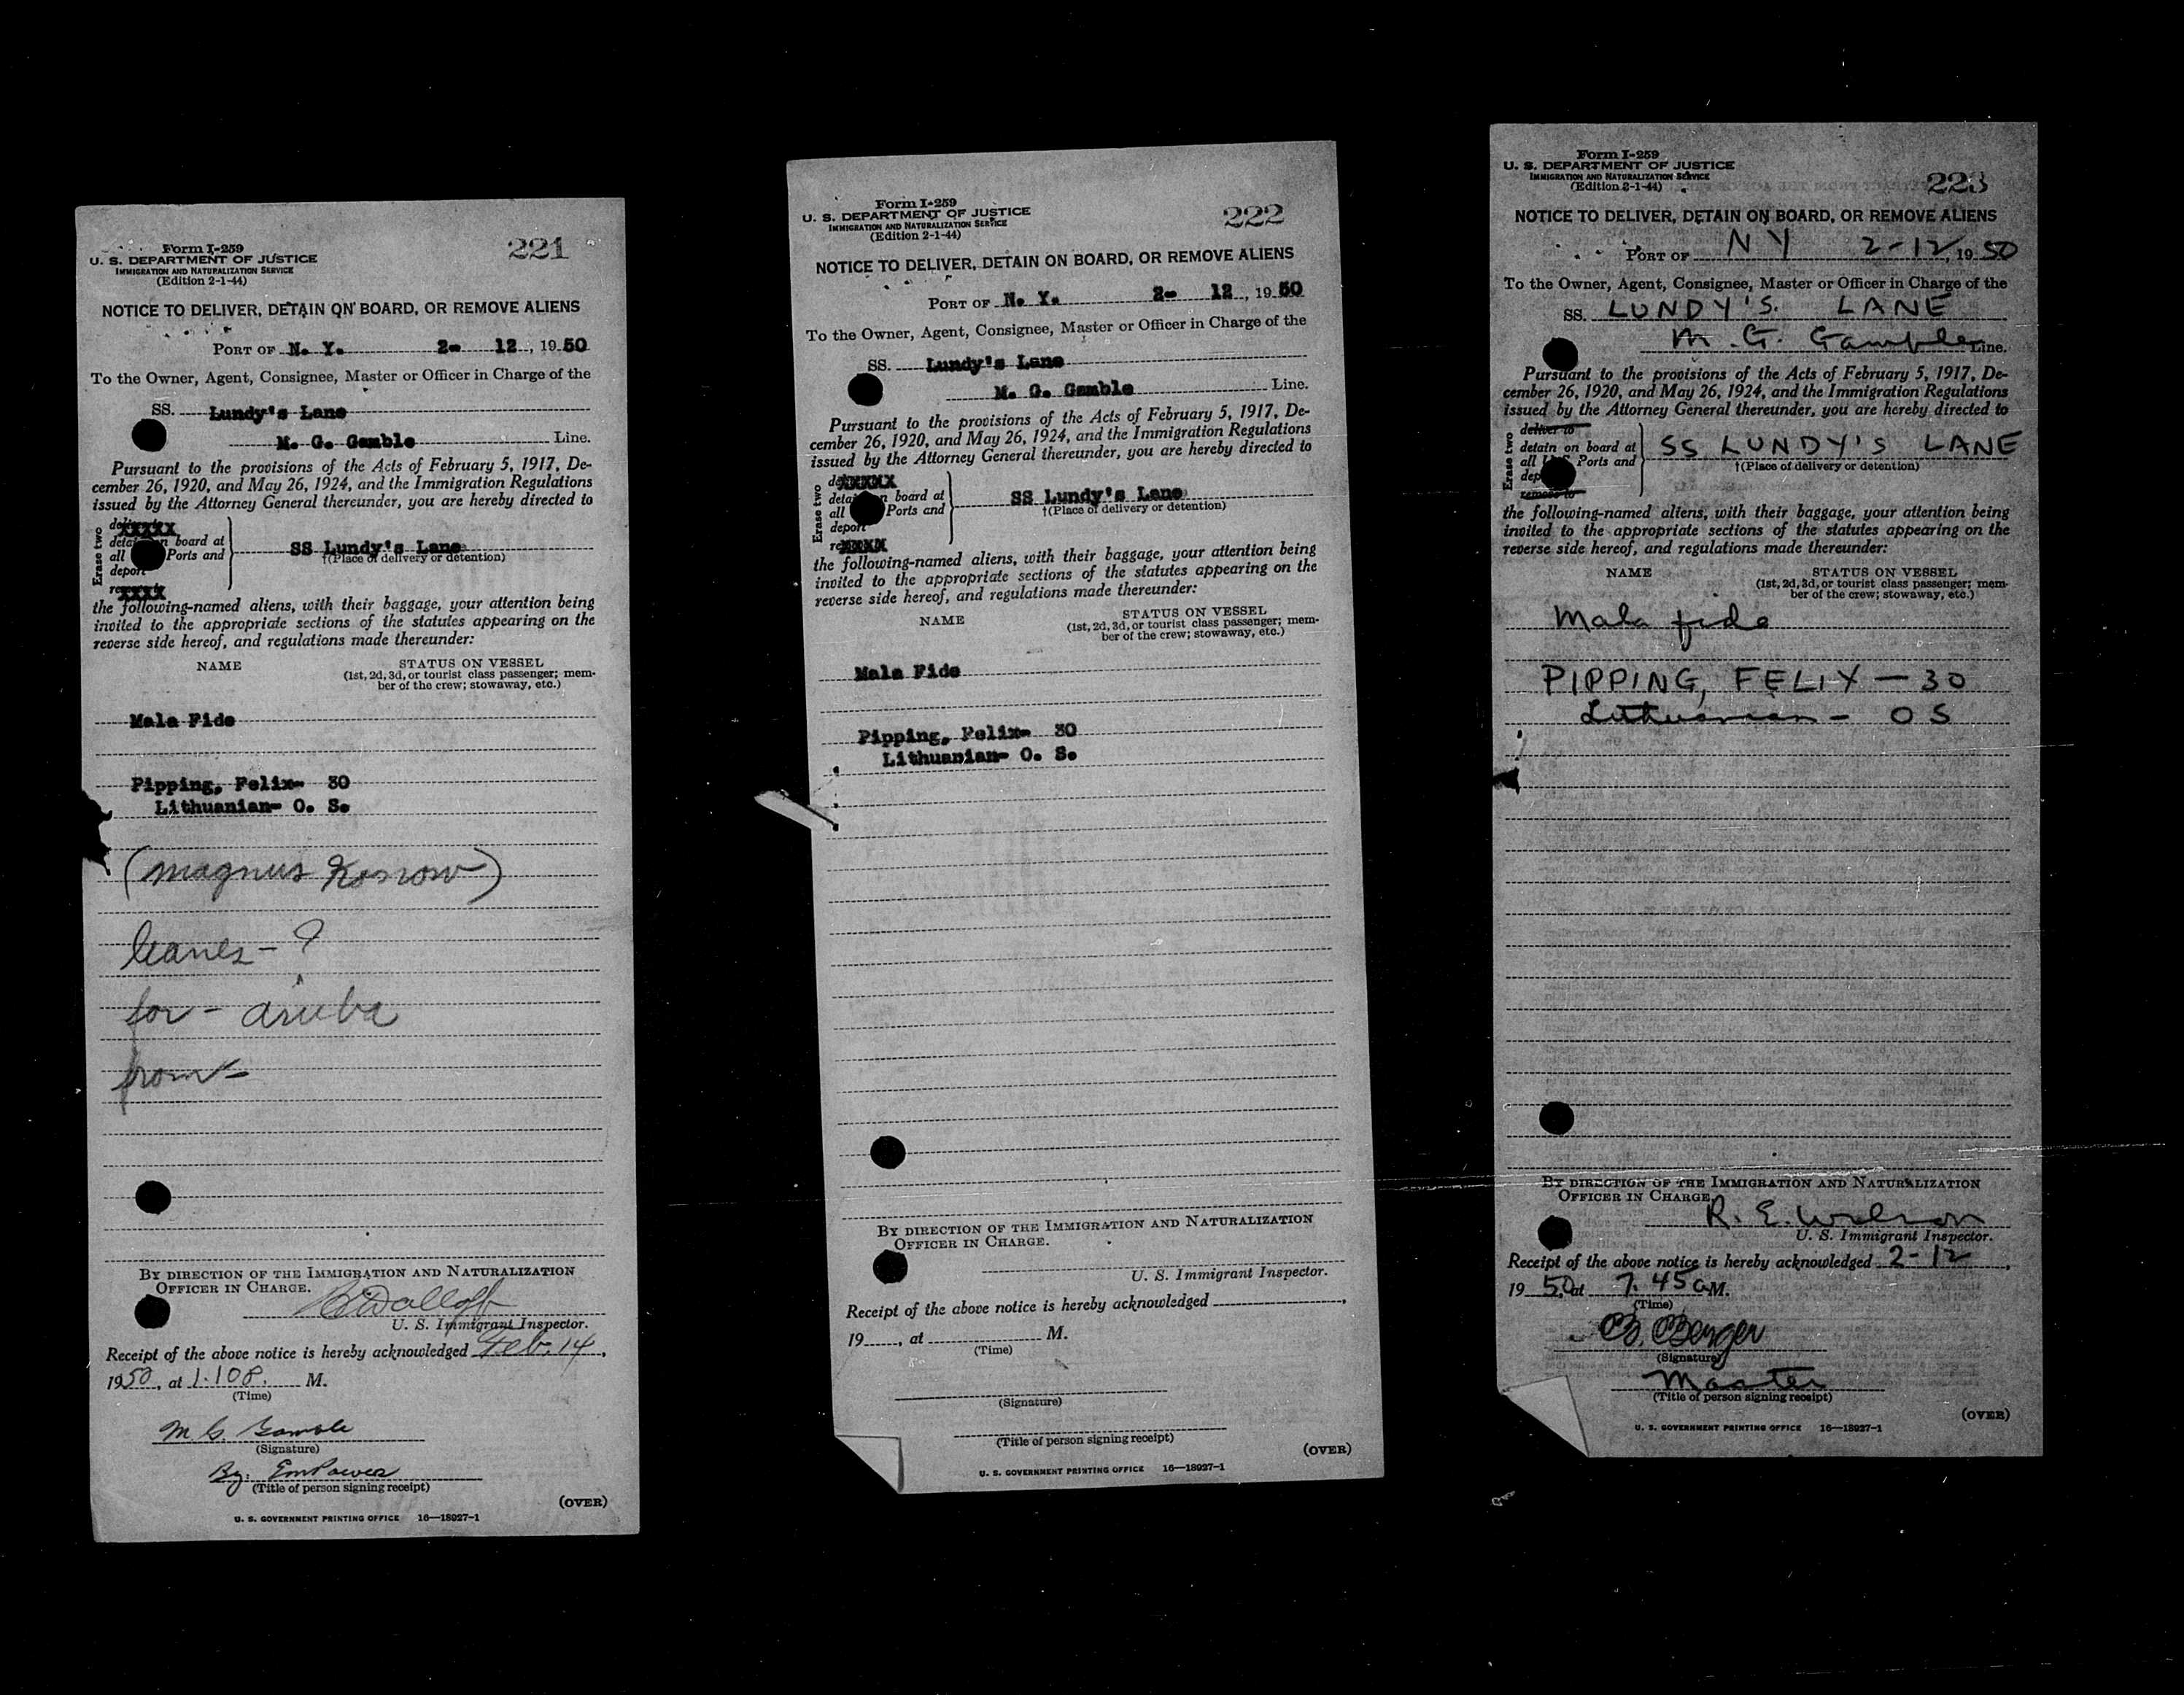 Form I-259
U. S. DEPARTMENT OF JUSTICE
IMMIGRATION AND NATURALIZATION SERVICE
(Edition 2-1-44)
221
NOTICE TO DELIVER, DETAIN ON BOARD, OR REMOVE ALIENS
PORT OF N. Y. 2- 12, 1950
To the Owner, Agent, Consignee, Master or Officer in Charge of the
SS. Lundy's Lane
M. G. Gamble Line.
Pursuant to the provisions of the Acts of February 5, 1917, De-
cember 26, 1920, and May 26, 1924, and the Immigration Regulations
issued by the Attorney General thereunder, you are hereby directed to
Erase two
XXXXX
board at
all Ports and
deport
XXXX
SS Lundy's Lane
†(Place of delivery or detention)
the following-named aliens, with their baggage, your attention being
invited to the appropriate sections of the statutes appearing on the
reverse side hereof, and regulations made thereunder:
NAME STATUS ON VESSEL
(1st, 2d, 3d, or tourist class passenger; mem-
ber of the crew; stowaway, etc.)
Mala Fide
Pipping, Felix- 30
Lithuanian- O. S.
(Magnus
leaves - ?
for - aruba
from -
BY DIRECTION OF THE IMMIGRATION AND NATURALIZATION
OFFICER IN CHARGE.
U. S. Immigrant Inspector.
Receipt of the above notice is hereby acknowledged Feb. 14,
1950, at 1.10 P. M.
(Time)
M. G. Gamble
(Signature)
By. EmPower
(Title of person signing receipt)
(OVER)
U. S. GOVERNMENT PRINTING OFFICE 16—18927-1
Form I-259
U. S. DEPARTMENT OF JUSTICE
IMMIGRATION AND NATURALIZATION SERVICE
(Edition 2-1-44)
222
NOTICE TO DELIVER, DETAIN ON BOARD, OR REMOVE ALIENS
PORT OF N. Y. 2- 12, 1950
To the Owner, Agent, Consignee, Master or Officer in Charge of the
SS. Lundy's Lane
M. G. Gamble Line.
Pursuant to the provisions of the Acts of February 5, 1917, De-
cember 26, 1920, and May 26, 1924, and the Immigration Regulations
issued by the Attorney General thereunder, you are hereby directed to
Erase two
XXXXX
board at
all Ports and
deport
XXXX
SS Lundy's Lane
†(Place of delivery or detention)
the following-named aliens, with their baggage, your attention being
invited to the appropriate sections of the statutes appearing on the
reverse side hereof, and regulations made thereunder:
NAME STATUS ON VESSEL
(1st, 2d, 3d, or tourist class passenger; mem-
ber of the crew; stowaway, etc.)
Mala Fide
Pipping, Felix- 30
Lithuanian- O. S.
BY DIRECTION OF THE IMMIGRATION AND NATURALIZATION
OFFICER IN CHARGE.
U. S. Immigrant Inspector.
Receipt of the above notice is hereby acknowledged ,
19 , at M.
(Time)
(Signature)
(Title of person signing receipt)
(OVER)
U. S. GOVERNMENT PRINTING OFFICE 16—18927-1
Form I-259
U. S. DEPARTMENT OF JUSTICE
IMMIGRATION AND NATURALIZATION SERVICE
(Edition 2-1-44)
223
NOTICE TO DELIVER, DETAIN ON BOARD, OR REMOVE ALIENS
PORT OF N Y 2-12, 1950
To the Owner, Agent, Consignee, Master or Officer in Charge of the
SS. LUNDY'S. LANE
M. G. Gamble Line.
Pursuant to the provisions of the Acts of February 5, 1917, De-
cember 26, 1920, and May 26, 1924, and the Immigration Regulations
issued by the Attorney General thereunder, you are hereby directed to
Erase two
deliver to
detain on board at
all Ports and
dep
remove to
SS LUNDY'S LANE
†(Place of delivery or detention)
the following-named aliens, with their baggage, your attention being
invited to the appropriate sections of the statutes appearing on the
reverse side hereof, and regulations made thereunder:
NAME STATUS ON VESSEL
(1st, 2d, 3d, or tourist class passenger; mem-
ber of the crew; stowaway, etc.)
Mala fide
PIPPING, FELIX - 30
Lithuanian - OS
BY DIRECTION OF THE IMMIGRATION AND NATURALIZATION
OFFICER IN CHARGE.
R. E. Wilson
U. S. Immigrant Inspector.
Receipt of the above notice is hereby acknowledged 2-12,
1950, at 7.45 a M.
(Time)
B. Berger
(Signature)
Master
(Title of person signing receipt)
(OVER)
U. S. GOVERNMENT PRINTING OFFICE 16—18927-1